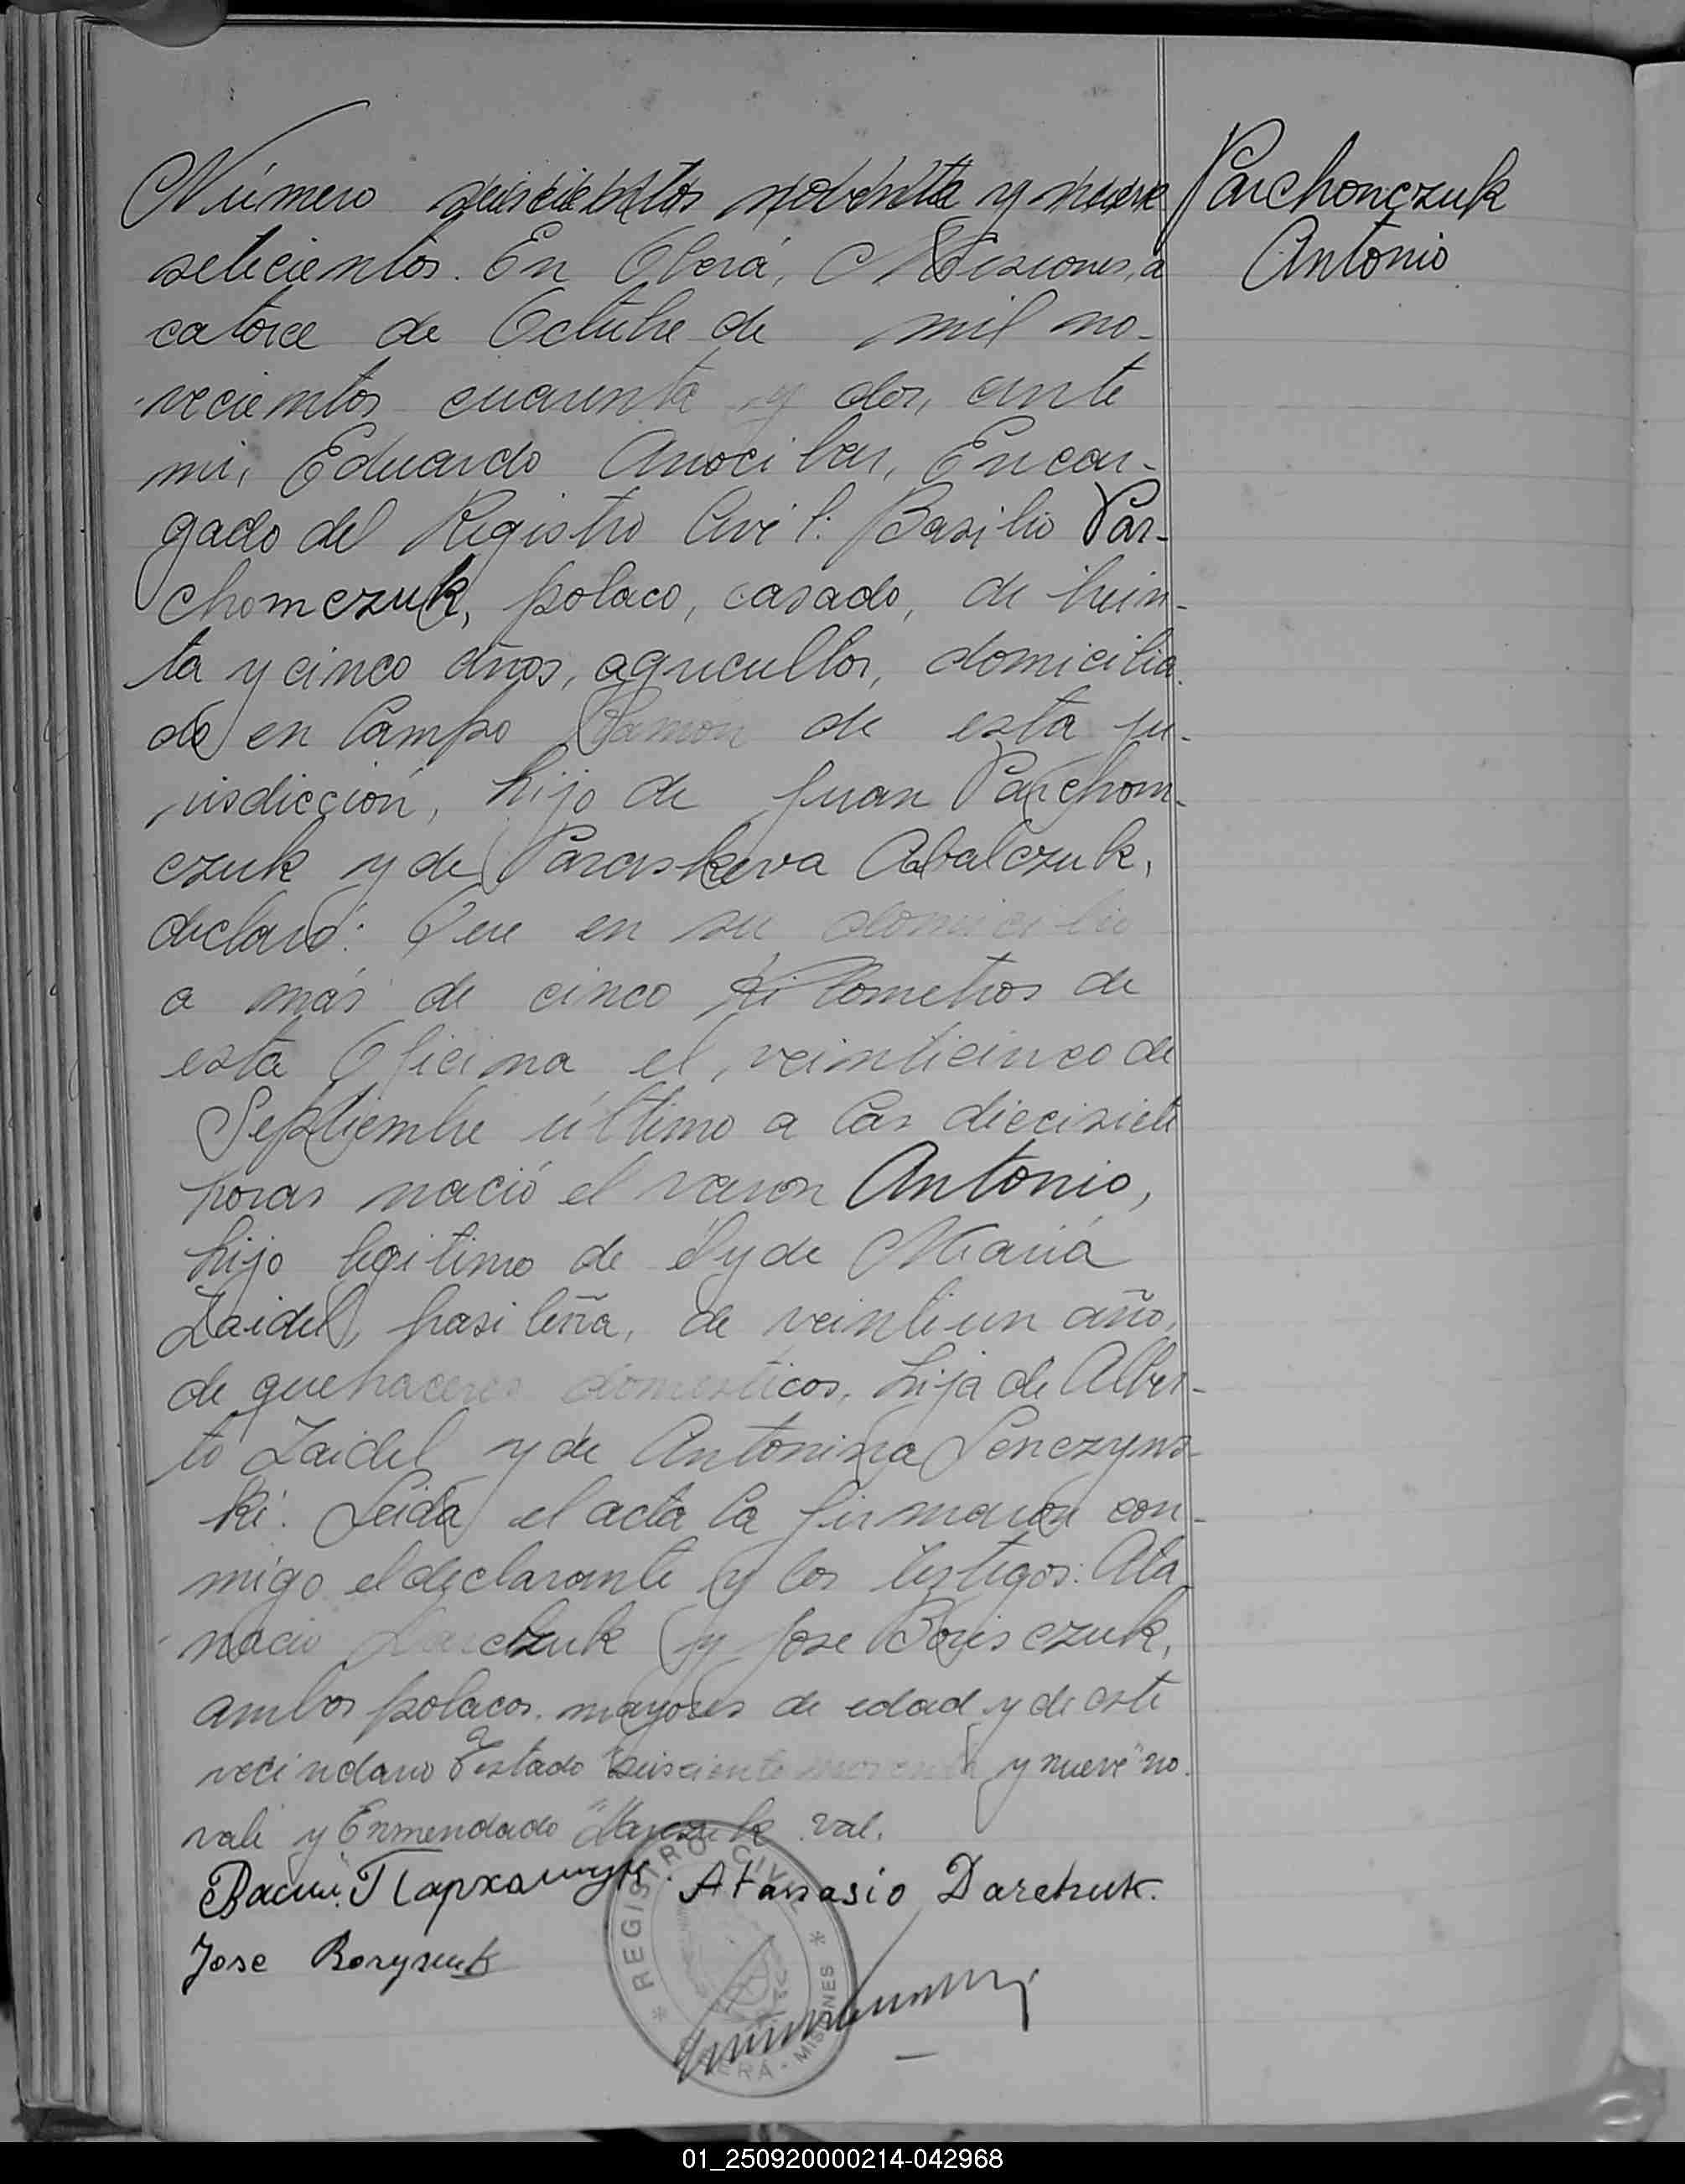 Número seiscientos noventa y nueve
setecientos. En Oberá, Misiones, a
catorce de Octubre de mil no-
vecientos cuarenta y dos, ante
mi, Eduardo Arocibar, Encar-
gado del Registro Civil: Basilio Par-
chomczuk, polaco, casado, de trein-
ta y cinco años, agricultor, domicilia
do en Campo Ramón de esta ju-
risdicción, hijo de Juan Parchom-
czuk y de Paraskewa Cabalczuk,
declaró: Que en su domicilio
a más de cinco kilometros de
esta Oficina el, veinticinco de
Septiembre último a las diecisiete
horas nació el varon Antonio,
hijo legitimo de él y de María
Zaidel, brasileña, de veintiun año,
de quehaceres domesticos, hija de Alber-
to Zaidel y de Antonina Senczyns-
ki. Leida el acta la firmaron con-
migo el declarante y los testigos: Ata
nacio Darczuk y Jose Borisczuk,
ambos polacos. mayores de edad y de este
vecindario Testado "seisciento noventa y nueve" no.
vale y Enmendado val.
Parchonczuk
Antonio
Васил. Пархомчук. Atanasio Darchuk.
Jose Borysuk
* REGISTRO CIVIL *
OBERA - MISIONES
01_250920000214-042968